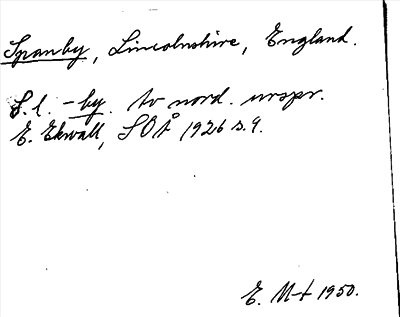 Spanby, Lincolnshire, England.
S.l. -by. av nord. urspr.
E. Ekwall, SOÅ 1926 s. 9.
E. M-t 1950.